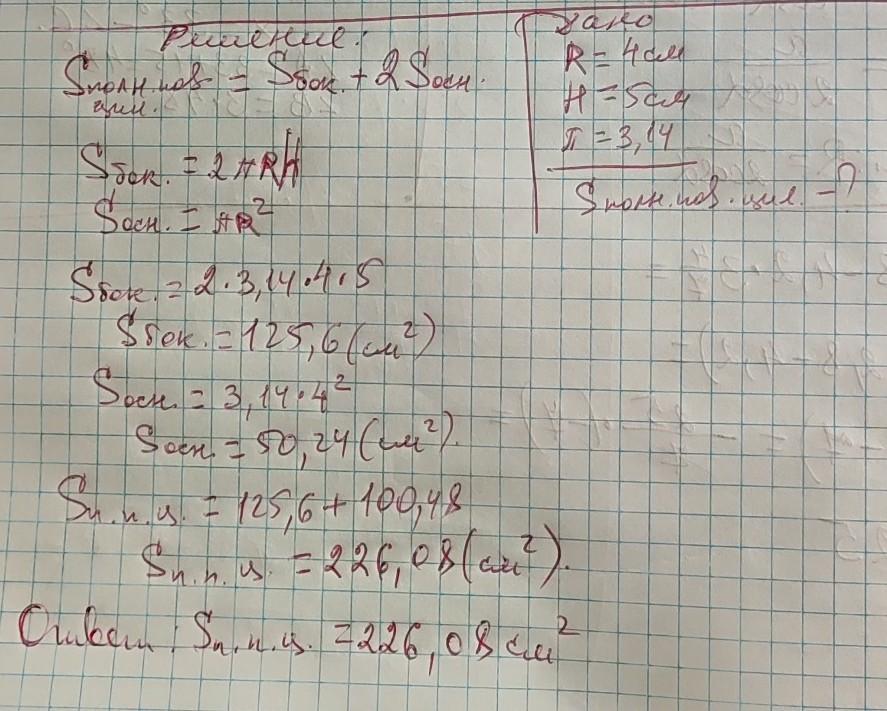 Решение:
Sполн.пов = Sбок. + 2Sосн.
цил.
Sбок. = 2πRH
Sосн. = πR²
Sбок. = 2·3,14·4·5
Sбок. = 125,6(см²)
Sосн. = 3,14·4²
Sосн. = 50,24(см²).
Sп.п.ц. = 125,6 + 100,48
Sп.п.ц. = 226,08(см²).
Ответ: Sп.п.ц. = 226,08 см²
Дано
R = 4см
H = 5см
π = 3,14
Sполн.пов.цил. -?